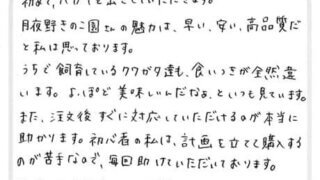 月夜野きのこ園さんの魅力は、早い、安い、高品質だ
と私は思っております。
うちで飼育しているクワガタ達も、食いつきが全然違
います。よっぽど美味しいんだなぁ、といつも見ています。
また、注文後すぐに対応していただけるのが本当に
助かります。初心者の私は、計画を立てて購入する
のが苦手なので、毎回助けていただいております。